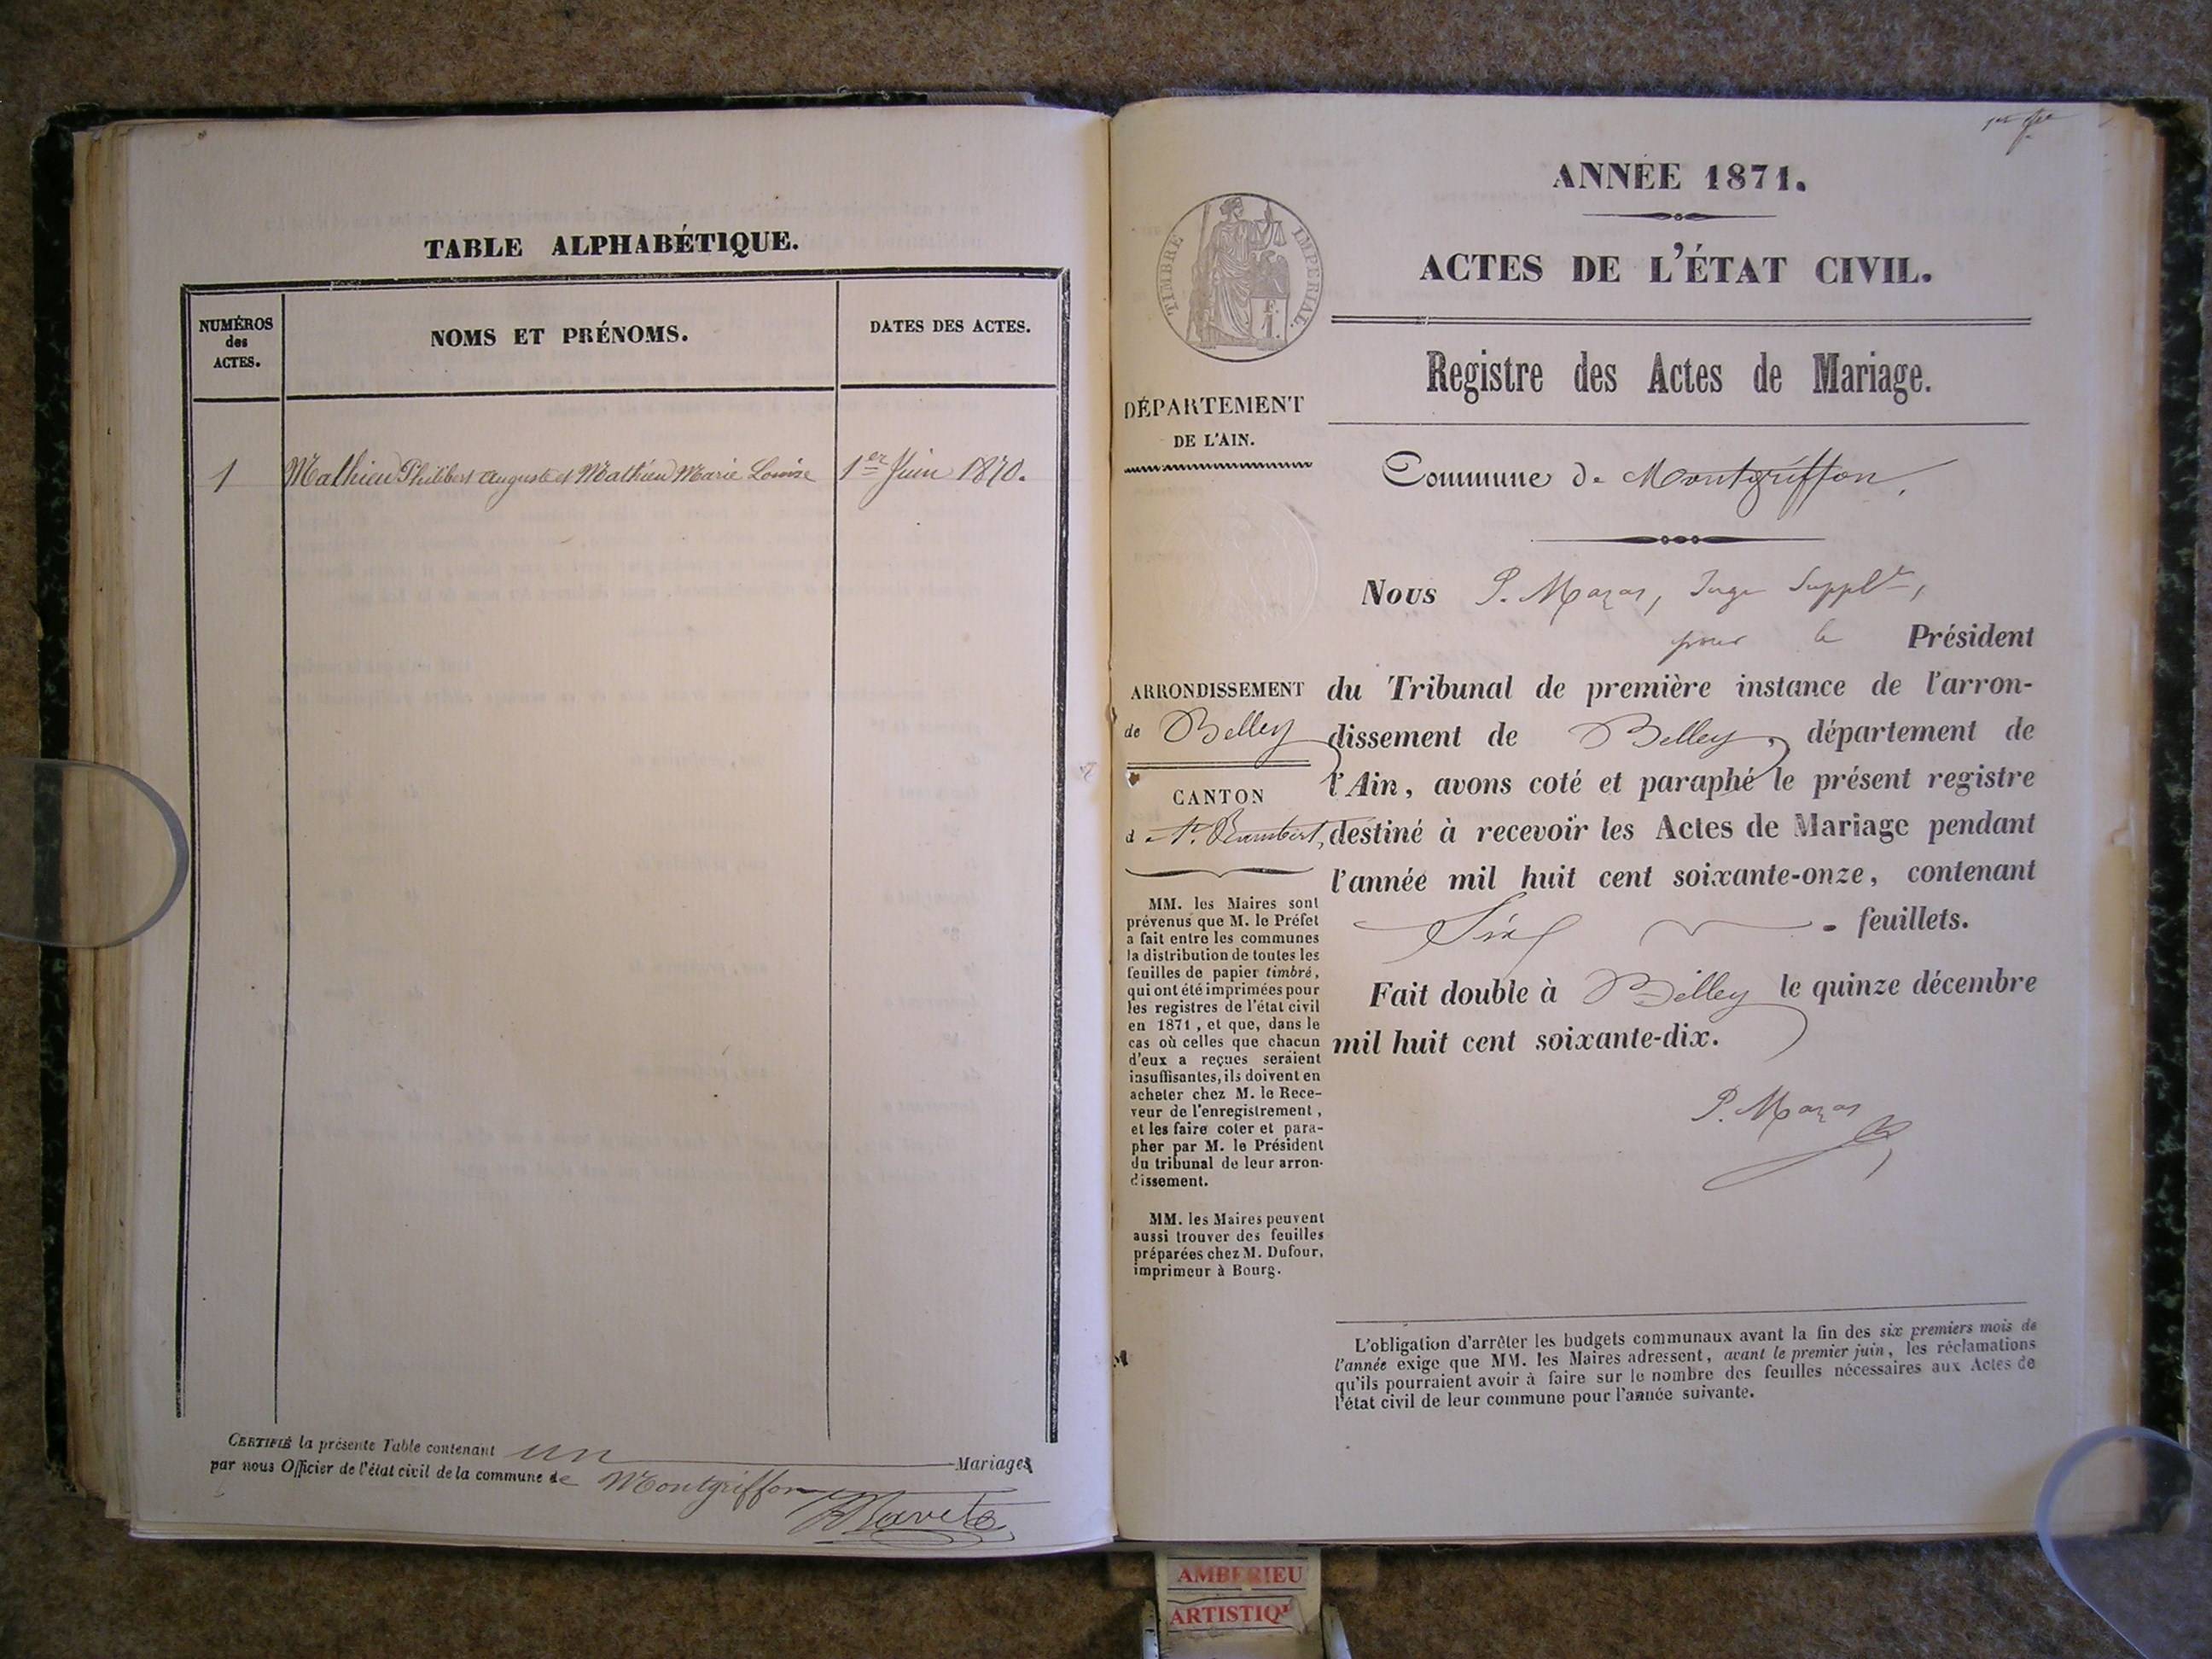 TABLE ALPHABÉTIQUE.
NUMÉROS
des
ACTES.
NOMS ET PRÉNOMS.
DATES DES ACTES.
1 Mathieu Philibert Auguste et Mathieu Marie Louise 1er Juin 1870.
CERTIFIÉ la présente Table contenant un Mariages
par nous Officier de l'état civil de la commune de Montgriffon
1er
ANNÉE 1871.
ACTES DE L'ÉTAT CIVIL.
Registre des Actes de Mariage.
TIMBRE IMPERIAL.
F.
1.
DÉPARTEMENT
DE L'AIN.
Commune de Montgriffon,
Nous P. Mazas, Juge Supplt,
pour le Président
du Tribunal de première instance de l'arron-
dissement de Belley, département de
l'Ain, avons coté et paraphé le présent registre
destiné à recevoir les Actes de Mariage pendant
l'année mil huit cent soixante-onze, contenant
Six feuillets.
Fait double à Belley le quinze décembre
mil huit cent soixante-dix.
P. Mazas
ARRONDISSEMENT
de Belley
CANTON
de St. Rambert,
MM. les Maires sont
prévenus que M. le Préfet
a fait entre les communes
la distribution de toutes les
feuilles de papier timbré,
qui ont été imprimées pour
les registres de l'état civil
en 1871, et que, dans le
cas où celles que chacun
d'eux a reçues seraient
insuffisantes, ils doivent en
acheter chez M. le Rece-
veur de l'enregistrement,
et les faire coter et para-
pher par M. le Président
du tribunal de leur arron-
dissement.
MM. les Maires peuvent
aussi trouver des feuilles
préparées chez M. Dufour,
imprimeur à Bourg.
L'obligation d'arrêter les budgets communaux avant la fin des six premiers mois de
l'année exige que MM. les Maires adressent, avant le premier juin, les réclamations
qu'ils pourraient avoir à faire sur le nombre des feuilles nécessaires aux Actes de
l'état civil de leur commune pour l'année suivante.
AMBERIEU
ARTISTIQU